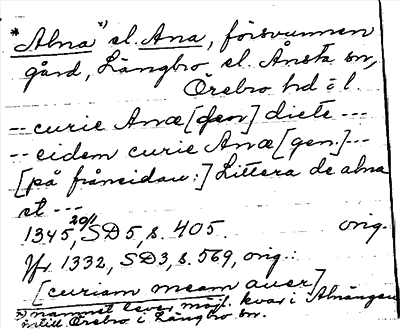 *Alna x) el. Ana, försvunnen
gård, Längbro el. Ånsta sn,
Örebro hd i l.
-- curie Anæ [gen] diete ---
-- eidem curie Anæ [gen.] ---
[på frånsidan:] Littera de alna
et ---
1345 20/1, SD5, s. 405. orig.
Jfr 1332, SD3, s. 569, orig.:
[curiam meam auer]
x) namnet lever möjl. kvar i Alnängen
intill Örebro i Längbro sn.